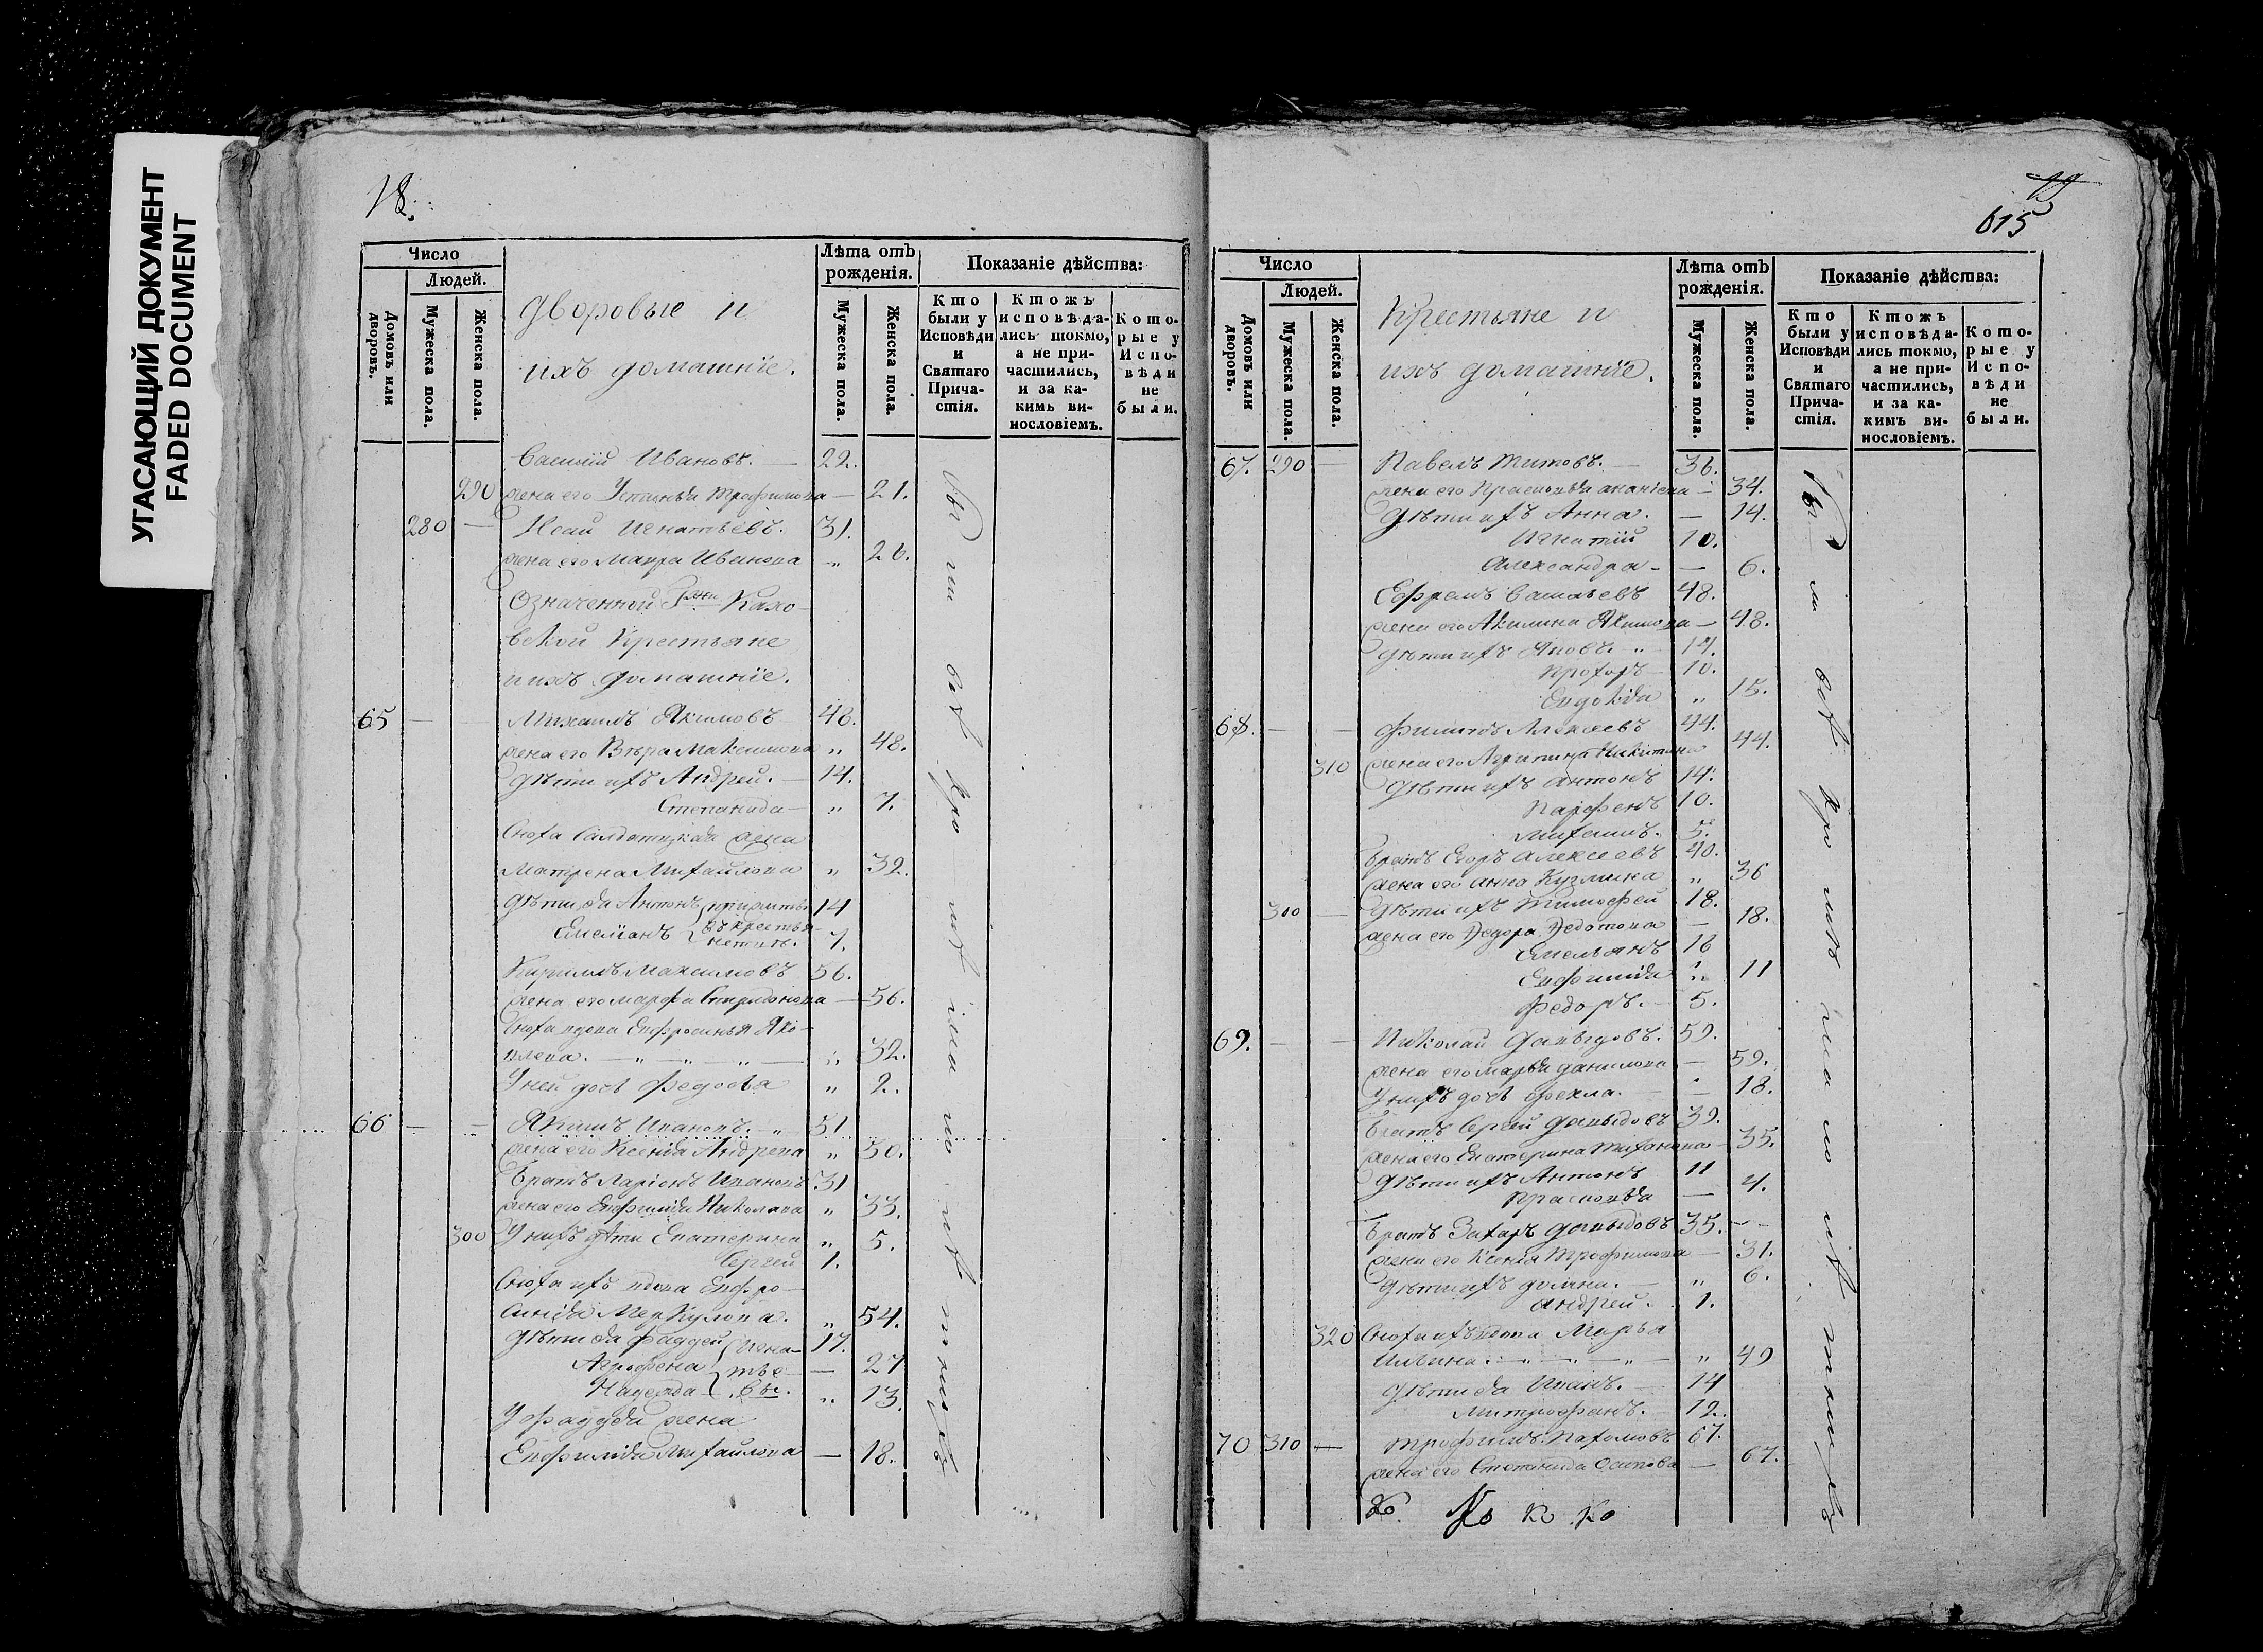 УГАСАЮЩИЙ ДОКУМЕНТ
FADED DOCUMENT
18.
Число
Людей.
Домовъ или дворовъ.
Мужеска пола.
Женска пола.
Дворовые и
ихъ домашніе.
Лѣта отъ рожденія.
Мужеска пола.
Женска пола.
Показаніе дѣйства:
Кто были у Исповѣди и Святаго Причастія.
Ктожъ исповѣдались токмо, а не причастились, и за какимъ винословіемъ.
Которые у Исповѣди не были.
Василій Ивановъ. — 22.
290 жена его Устинья Трофимова — 21.
280 — Исай Игнатьевъ. 31.
жена его Мавра Иванова „ 26.
Означенной Гжи Кахо-
вской Крестьяне
и ихъ домашніе.
65 — — Михаилъ Якимовъ 48.
жена его Вѣра Максимова „ 48.
Дѣти ихъ Андрей. — 14.
Степанида — „ 7.
Сноха Салдатская жена
Матрена Михайлова „ 32.
Дѣти ея Антонъ 14
Емеліанъ 7.
Кирилъ Максимовъ 56.
жена его Марфа Спиридонова — 56.
Сноха вдова Евфросинья Яко-
влева. — „ — „ — „ — „ 32.
У ней дочь Федосья „ 2.
66 — — Якимъ Ивановъ. — „ 51
жена его Ксенія Андреева „ 50.
Братъ Ларіонъ Ивановъ 31
жена его Евфимія Николаева „ 33.
300 У нихъ дѣти Екатерина „ 5.
Сергей 1.
Сноха ихъ вдова Евфро-
синія Меркулова. „ 54.
Дѣти ея Фаддей 17.
Агрофена — 27
Надежда „ 13.
Игна-
тье-
вы.
У Фаддея жена
Евфимія Михайлова — 18.
615
Число
Людей.
Домовъ или дворовъ.
Мужеска пола.
Женска пола.
Крестьяне и
ихъ домашніе.
Лѣта отъ рожденія.
Мужеска пола.
Женска пола.
Показаніе дѣйства:
Кто были у Исповѣди и Святаго Причастія.
Ктожъ исповѣдались токмо, а не причастились, и за какимъ винословіемъ.
Которые у Исповѣди не были.
67. 290 — Павелъ Титовъ. — 36.
жена его Прасковья Ананьева — 34.
Дѣти ихъ Анна. — 14.
Игнатій 10.
Александра — — 6.
Ефремъ Васильевъ 48.
жена его Акилина Якимова — 48.
Дѣти ихъ Яковъ. „ 17.
Прохоръ 10.
Евдокія „ 15.
68. — — Филипъ Алексеевъ 44.
310 жена его Агрипина Никитина 44.
Дѣти ихъ Антонъ 14.
Парфенъ 10.
Михаилъ. 5.
Братъ Егоръ Алексеевъ 40.
жена его Анна Кузмина „ 36
300 — Дѣти ихъ Тимофей 18.
жена его Федора Федотова — 18.
Емельянъ 16
Евфимія „ 11
Федоръ. — 5.
69. — — Николай Давыдовъ. 59.
жена его Марья Данилова — 59.
У нихъ дочь Фекла. — — 18.
Братъ Сергей Давыдовъ 39.
жена его Екатерина — 35.
Дѣти ихъ Антонъ 11
Прасковья — 4.
Братъ Захаръ Давыдовъ 35.
жена его Ксенія Трофимова — 31.
Дѣти ихъ Домна. — „ 6.
Андрей. 1.
320 Сноха ихъ вдова Марья
Ильина. — „ — „ — „ — „ 49
Дѣти ея Иванъ. 14
Митрофанъ. 12.
70 310 — Трофимъ Пахомовъ 67.
жена его Степанида Осипова — 67.